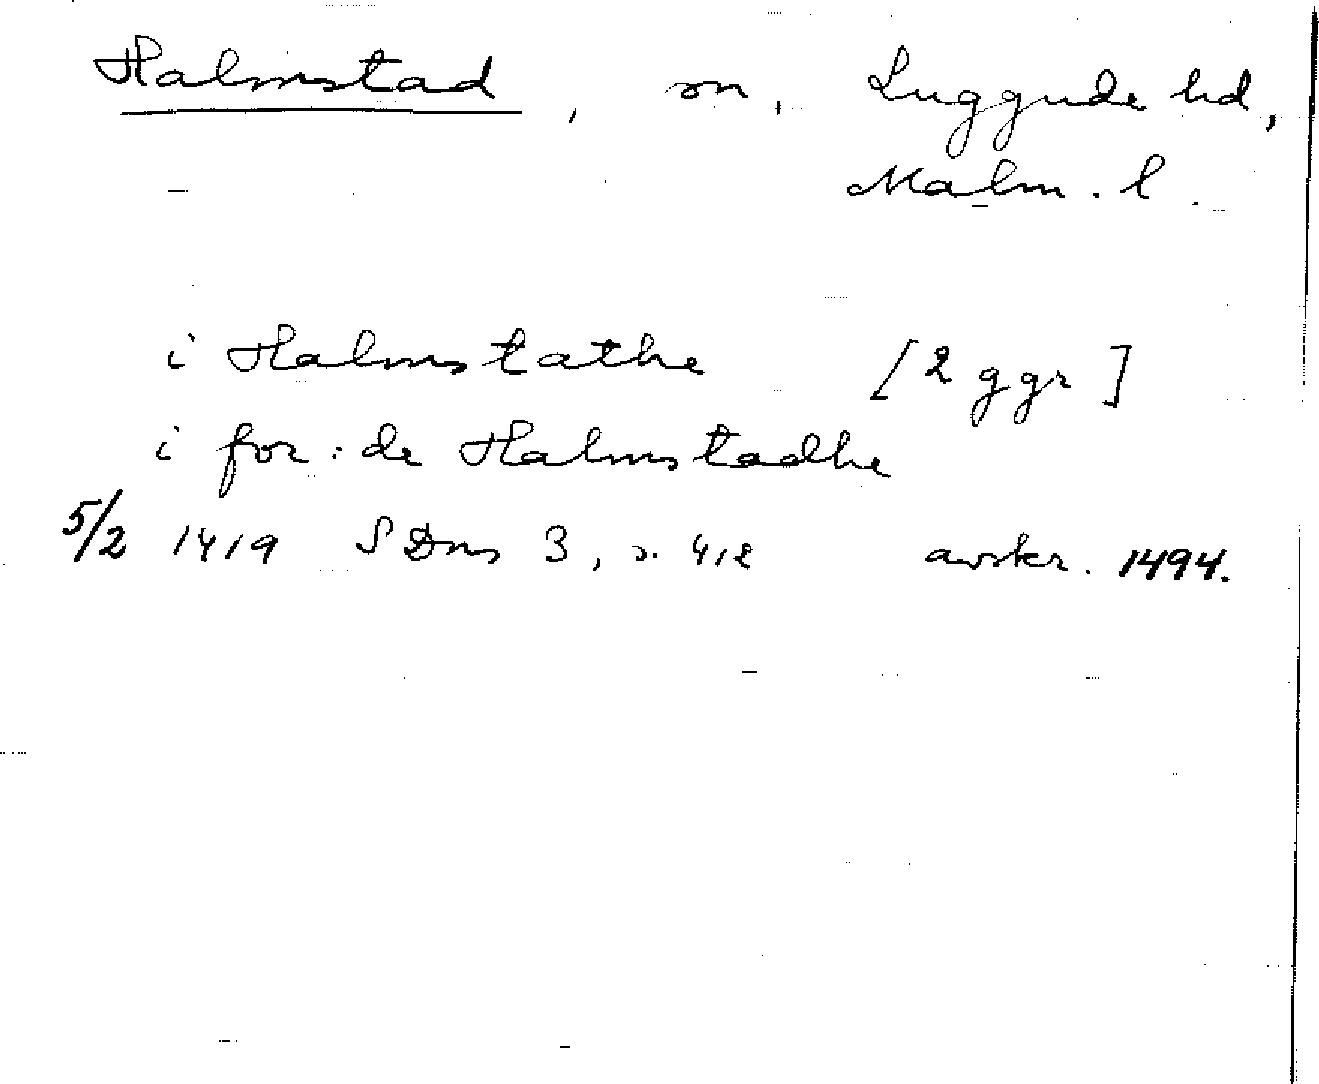 Halmstad, sn, Luggude hd,
Malm. l.
i Halmstathe [2 ggr]
i for: de Halmstadhe
5/2 1419 SDns 3, s. 412 avskr. 1494.